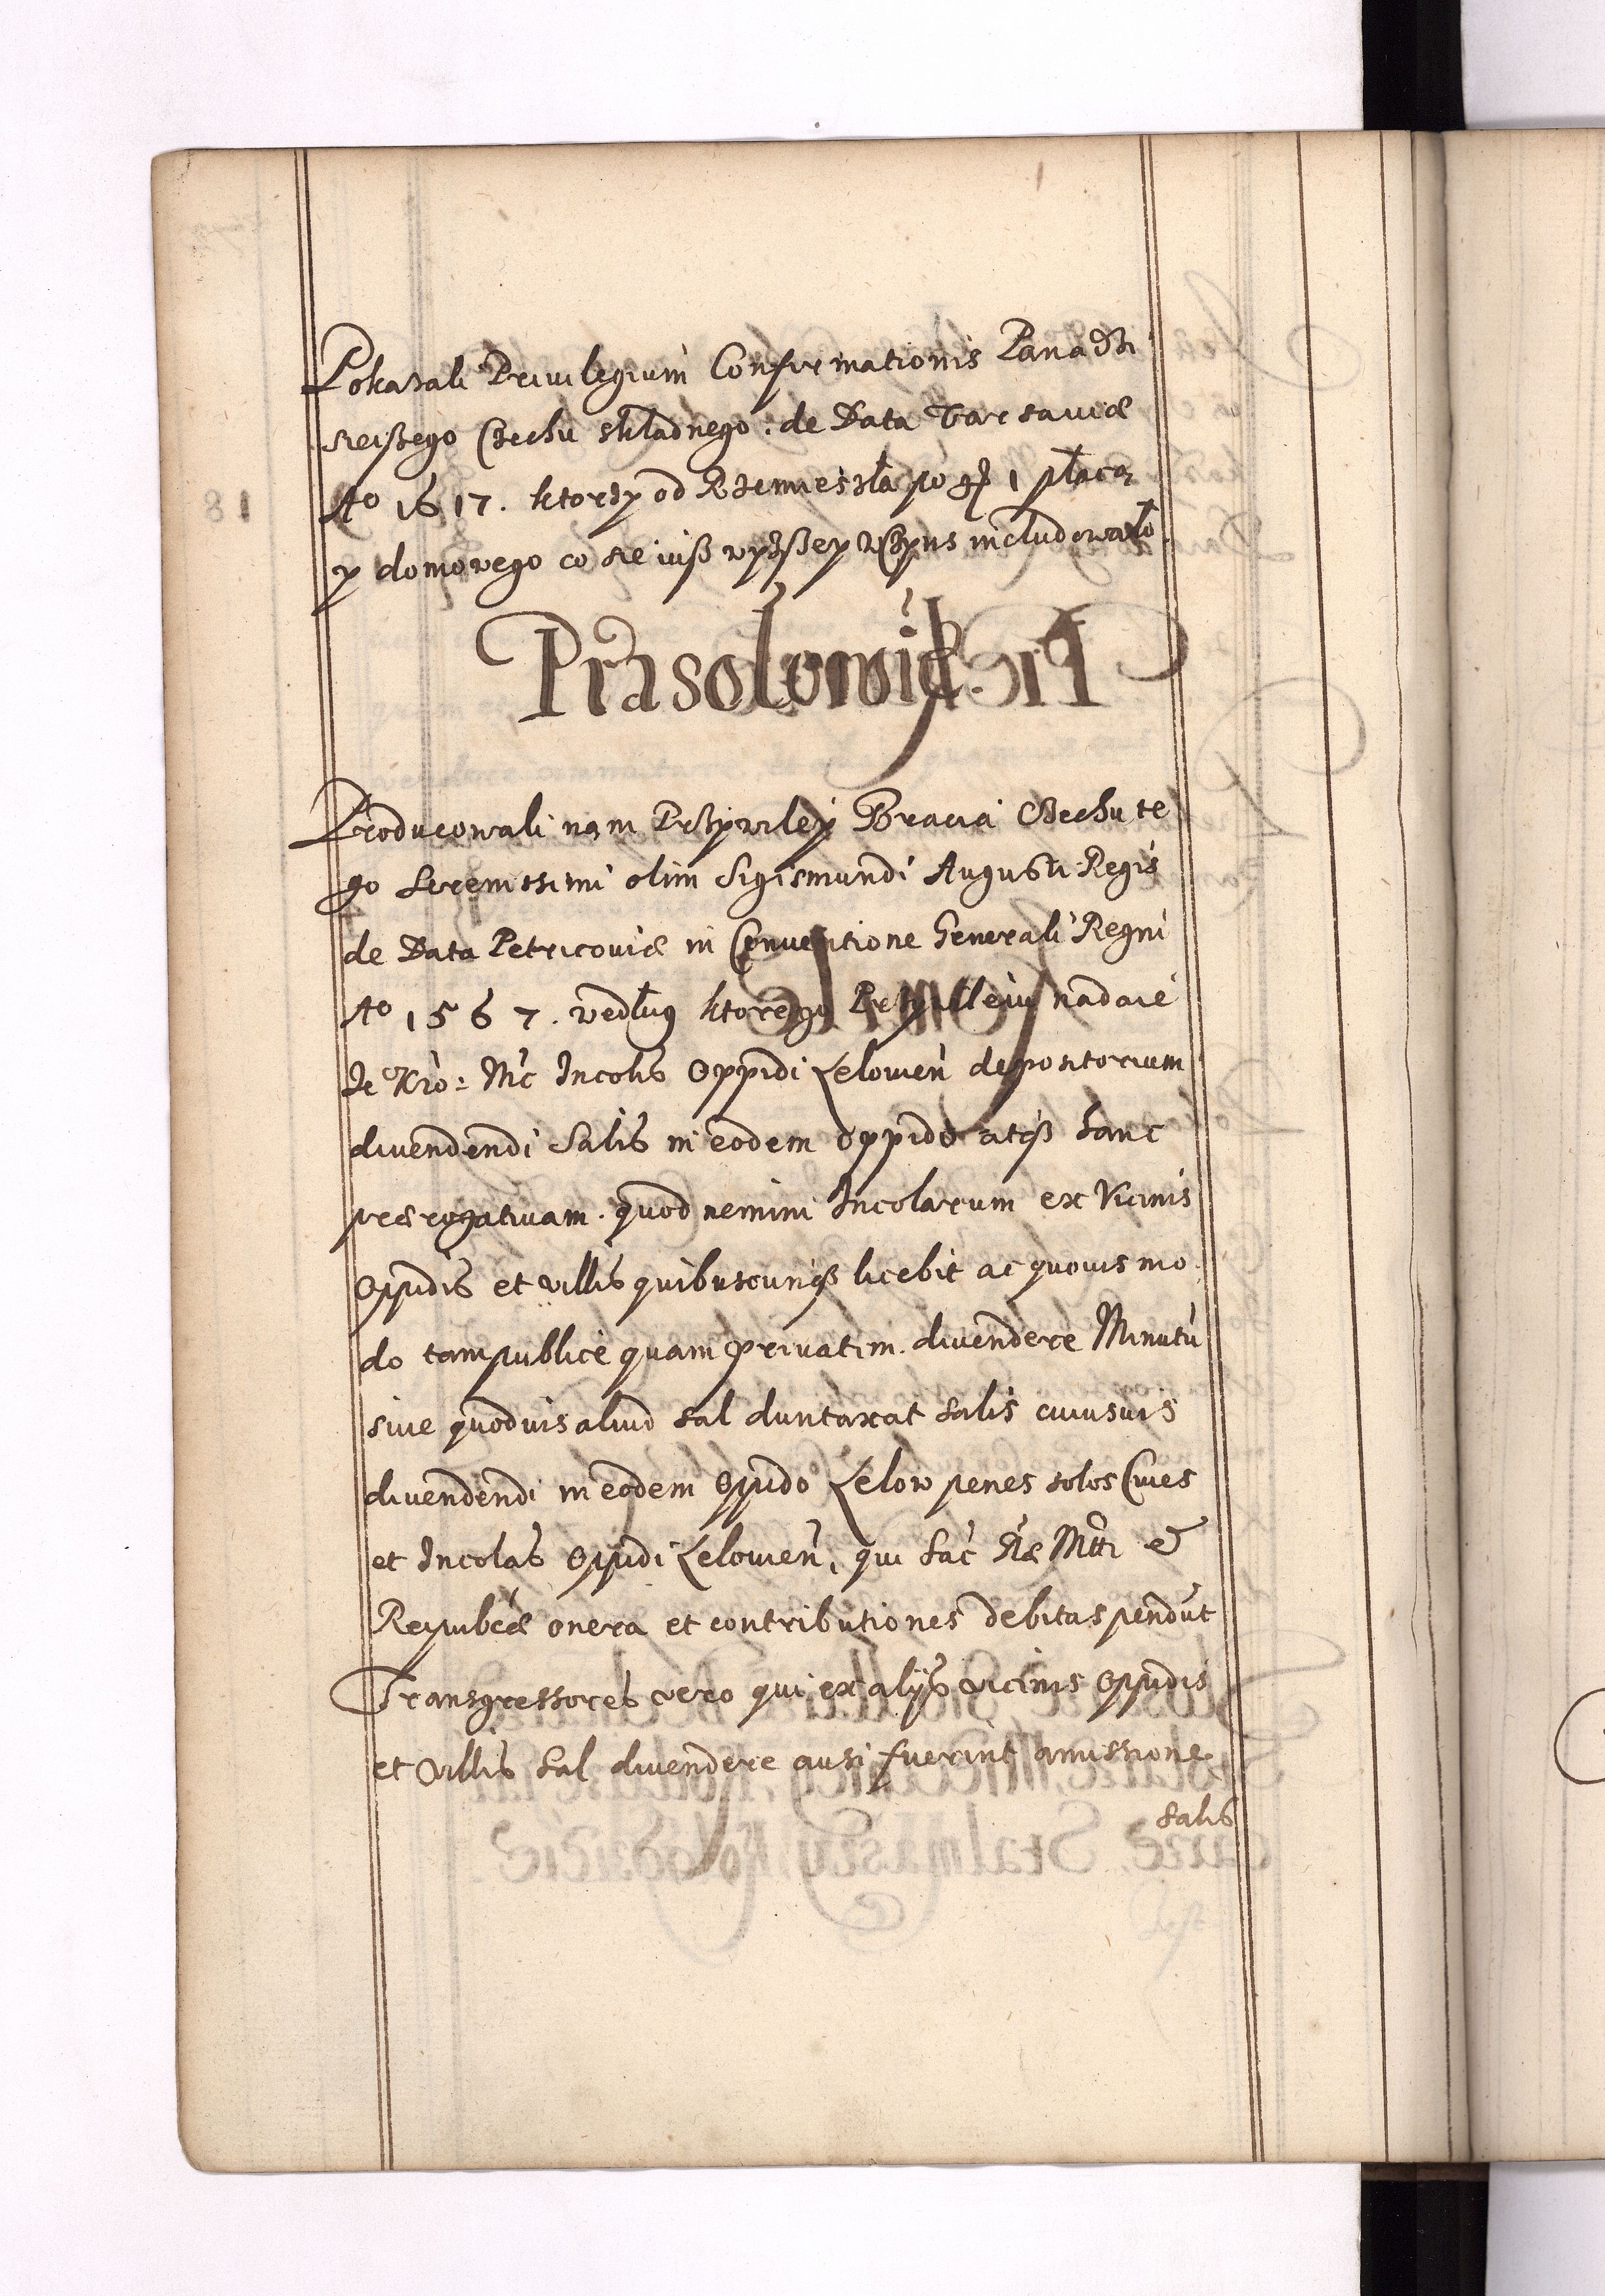 Pokazali Priuilegium Confirmationis Pana dzi
sieiszego Czechu składnego. de Data Varsauiæ
Ao 1617. ktorzy od Rzemiesła po gr 1 płacą
y domowego co sie iusz wyższey w Czyns includowało.
Prasołowie
Producowali nam Przywiley Bracia Czechu te
go Serenissimi olim Sigismundi Augusti Regis
de Data Petricouiæ in Conuentione Generali Regni
Ao 1567. według ktorego Przywileiu nadaie
Je Kró: Mć Incolis Oppidi Lelowień depositorium
diuendendi Salis in eodem oppido atqß hanc
prærogatiuam. quod nemini Incolarum ex Vicinis
Oppidis et villis quibuscunqß licebit ac quouis mo
do tam publicè quam priuatim. diuendere Minutū
siue quoduis aliud sal duntaxat salis cuiusuis
diuendendi in eodem Opido Lelow penes solos Ciues
et Incolas Opidi Leloweń, qui Sać Ræ Mtti et
Reipubcæ onera et contributiones debitas pendūt
Transgressores vero qui ex alijs vicinis Oppidis
et Villis Sal diuendere ausi fuerint amissione
salis
81